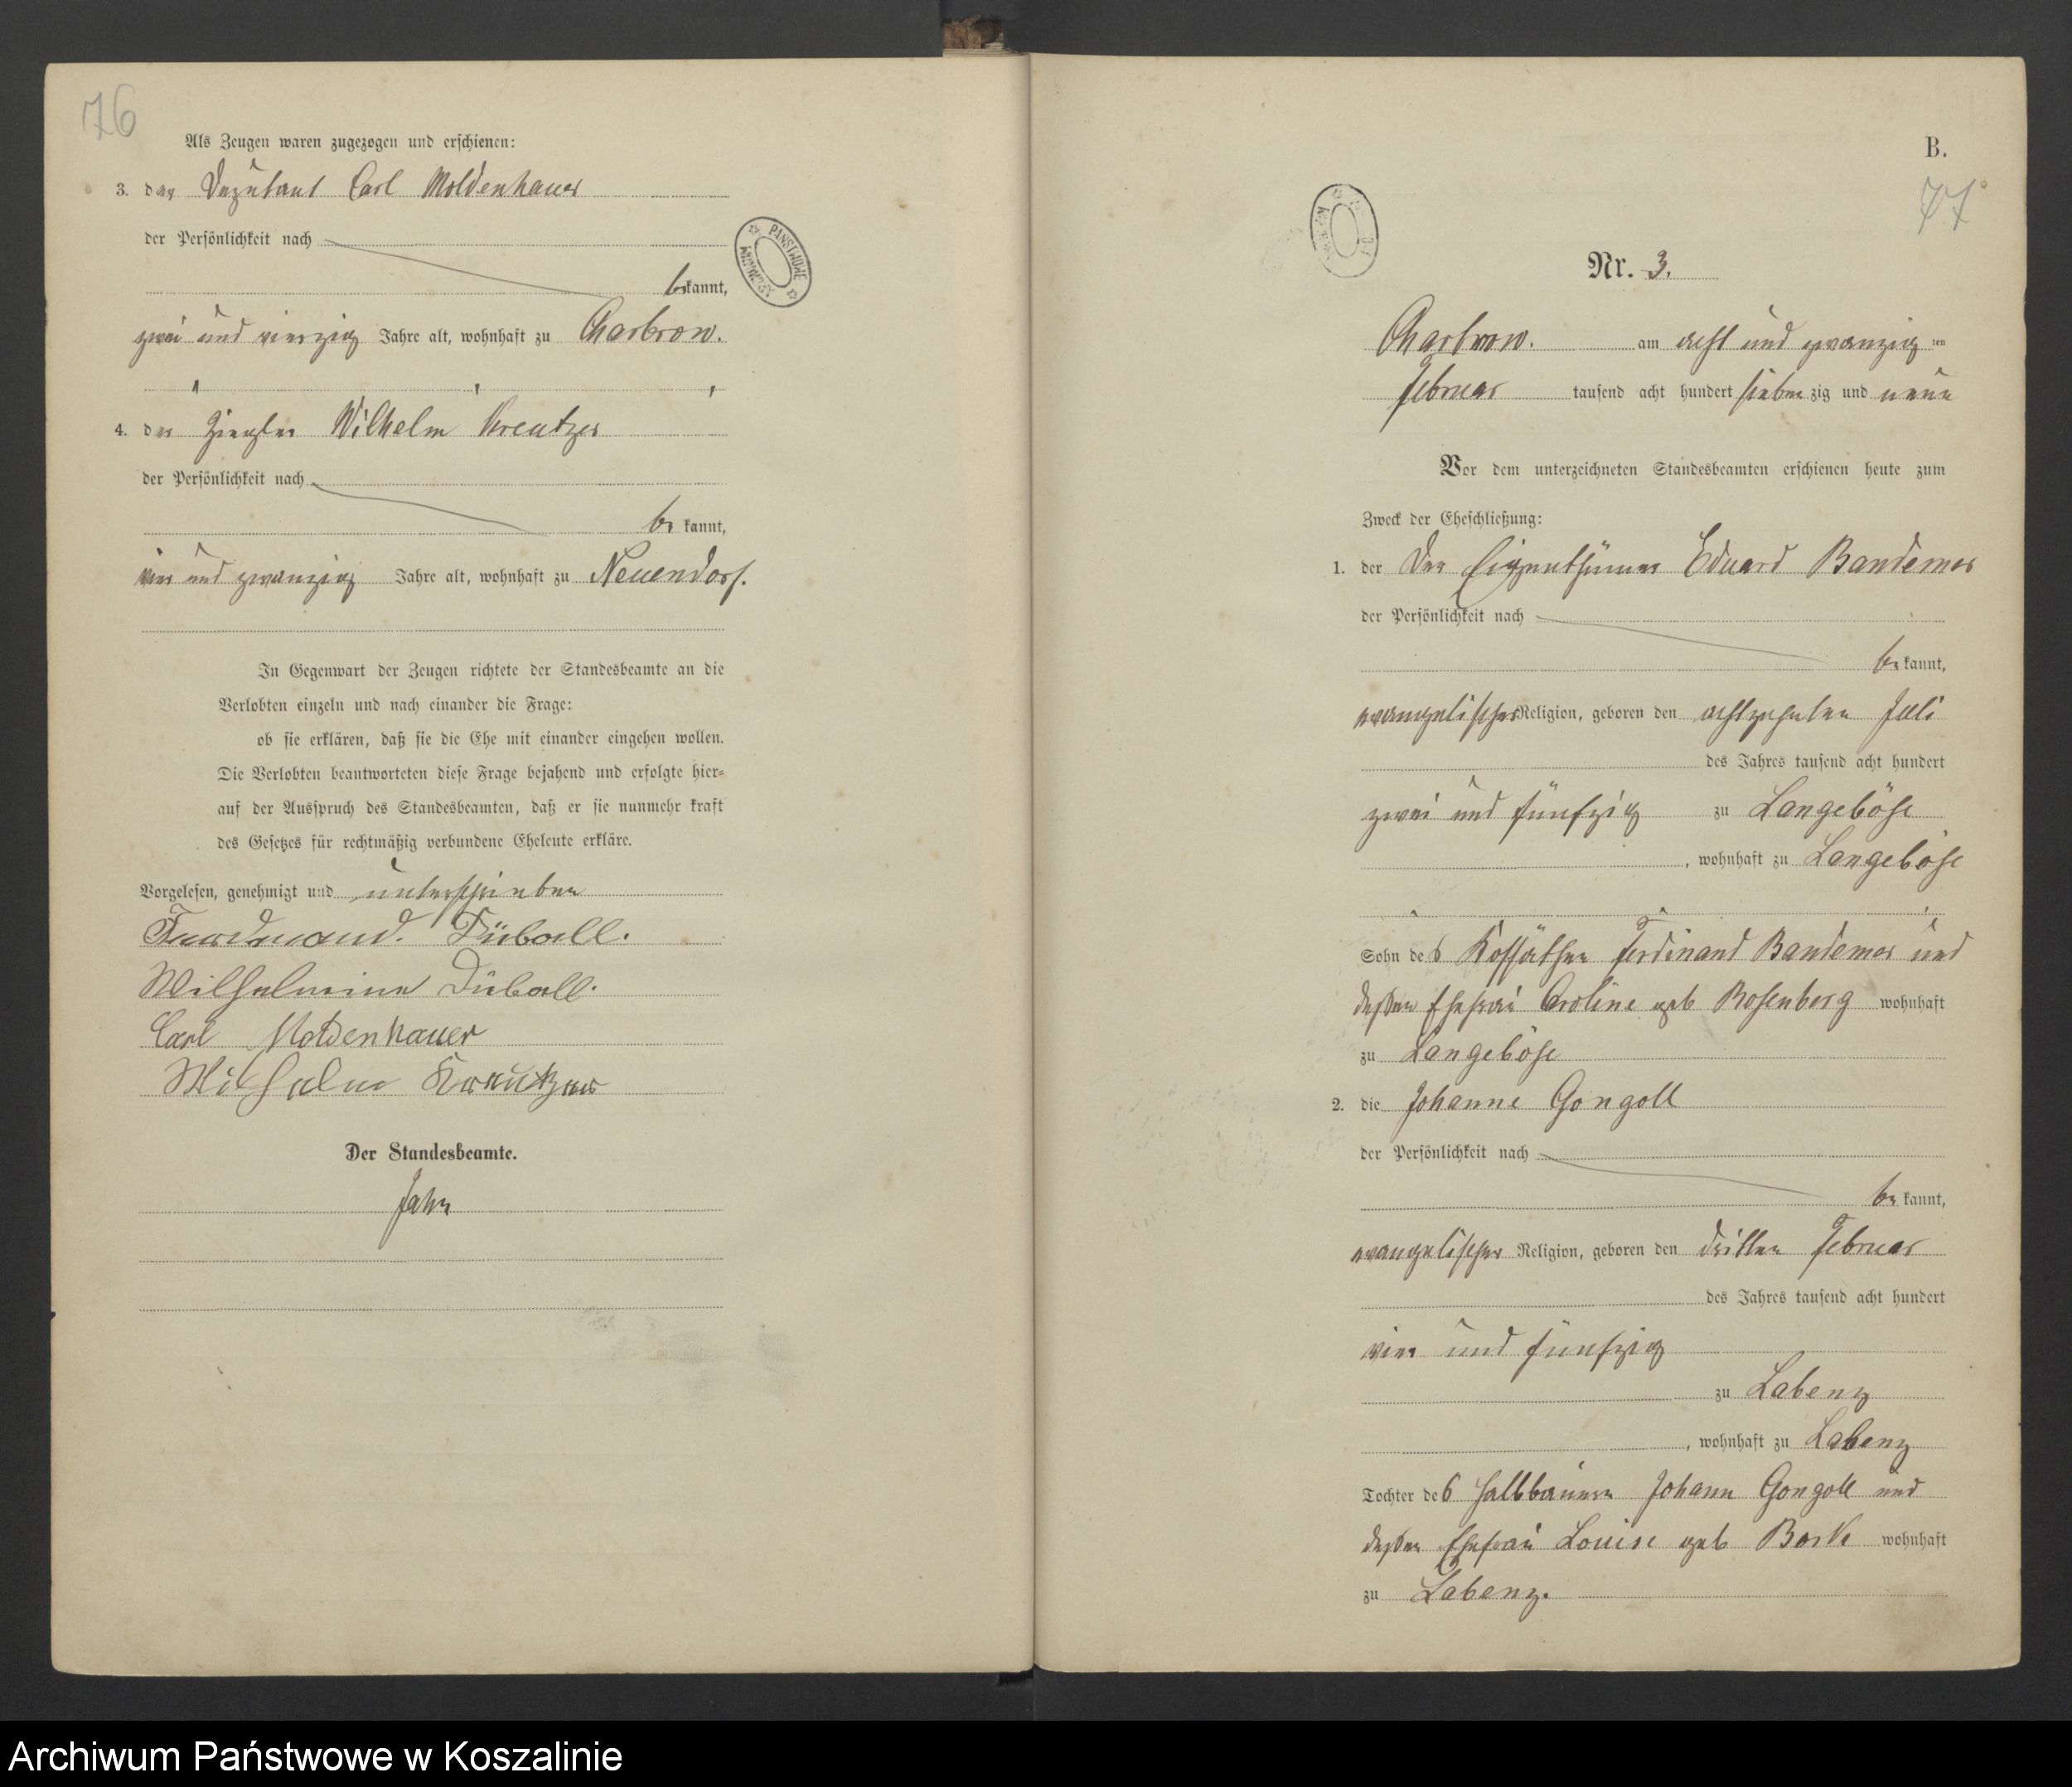 76
Als Zeugen waren zugezogen und erschienen:
3. der Deputant Carl Moldenhauer
der Persönlichkeit nach
bekannt,
zwei und vierzig Jahre alt, wohnhaft zu Charbrow.
4. der Ziegler Wilhelm Kreutzer
der Persönlichkeit nach
be kannt,
vier und zwanzig Jahre alt, wohnhaft zu Neuendorf.
PAŃSTWOWE
In Gegenwart der Zeugen richtete der Standesbeamte an die
Verlobten einzeln und nach einander die Frage:
ob sie erklären, daß sie die Ehe mit einander eingehen wollen.
Die Verlobten beantworteten diese Frage bejahend und erfolgte hier-
auf der Ausspruch des Standesbeamten, daß er sie nunmehr kraft
des Gesetzes für rechtmäßig verbundene Eheleute erkläre.
Vorgelesen, genehmigt und unterschrieben
Ferdinand. Düball.
Wilhelmine Düball.
Carl Moldenhauer
Wilhelm Kreutzer
Der Standesbeamte.
Jahn
B.
77
Nr. 3.
Charbrow. am acht und zwanzig ten
Februar tausend acht hundert sieben zig und neun
Vor dem unterzeichneten Standesbeamten erschienen heute zum
Zweck der Eheschließung:
1. der Der Eigenthümer Eduard Bandemer
der Persönlichkeit nach
be kannt,
evangelischer Religion, geboren den achtzehnten Juli
des Jahres tausend acht hundert
zwei und fünfzig zu Langeböse
, wohnhaft zu Langeböse
Sohn des Kossäthen Ferdinand Bandemer und
dessen Ehefrau Caroline geb Rosenberg wohnhaft
zu Langeböse
2. die Johanne Gongoll
der Persönlichkeit nach
be kannt,
evangelischer Religion, geboren den dritten Februar
des Jahres tausend acht hundert
vier und fünfzig
zu Labenz
, wohnhaft zu Labenz
Tochter des Halbbauern Johann Gongoll und
dessen Ehefrau Louise geb Borke wohnhaft
zu Labenz.
Archiwum Państwowe w Koszalinie